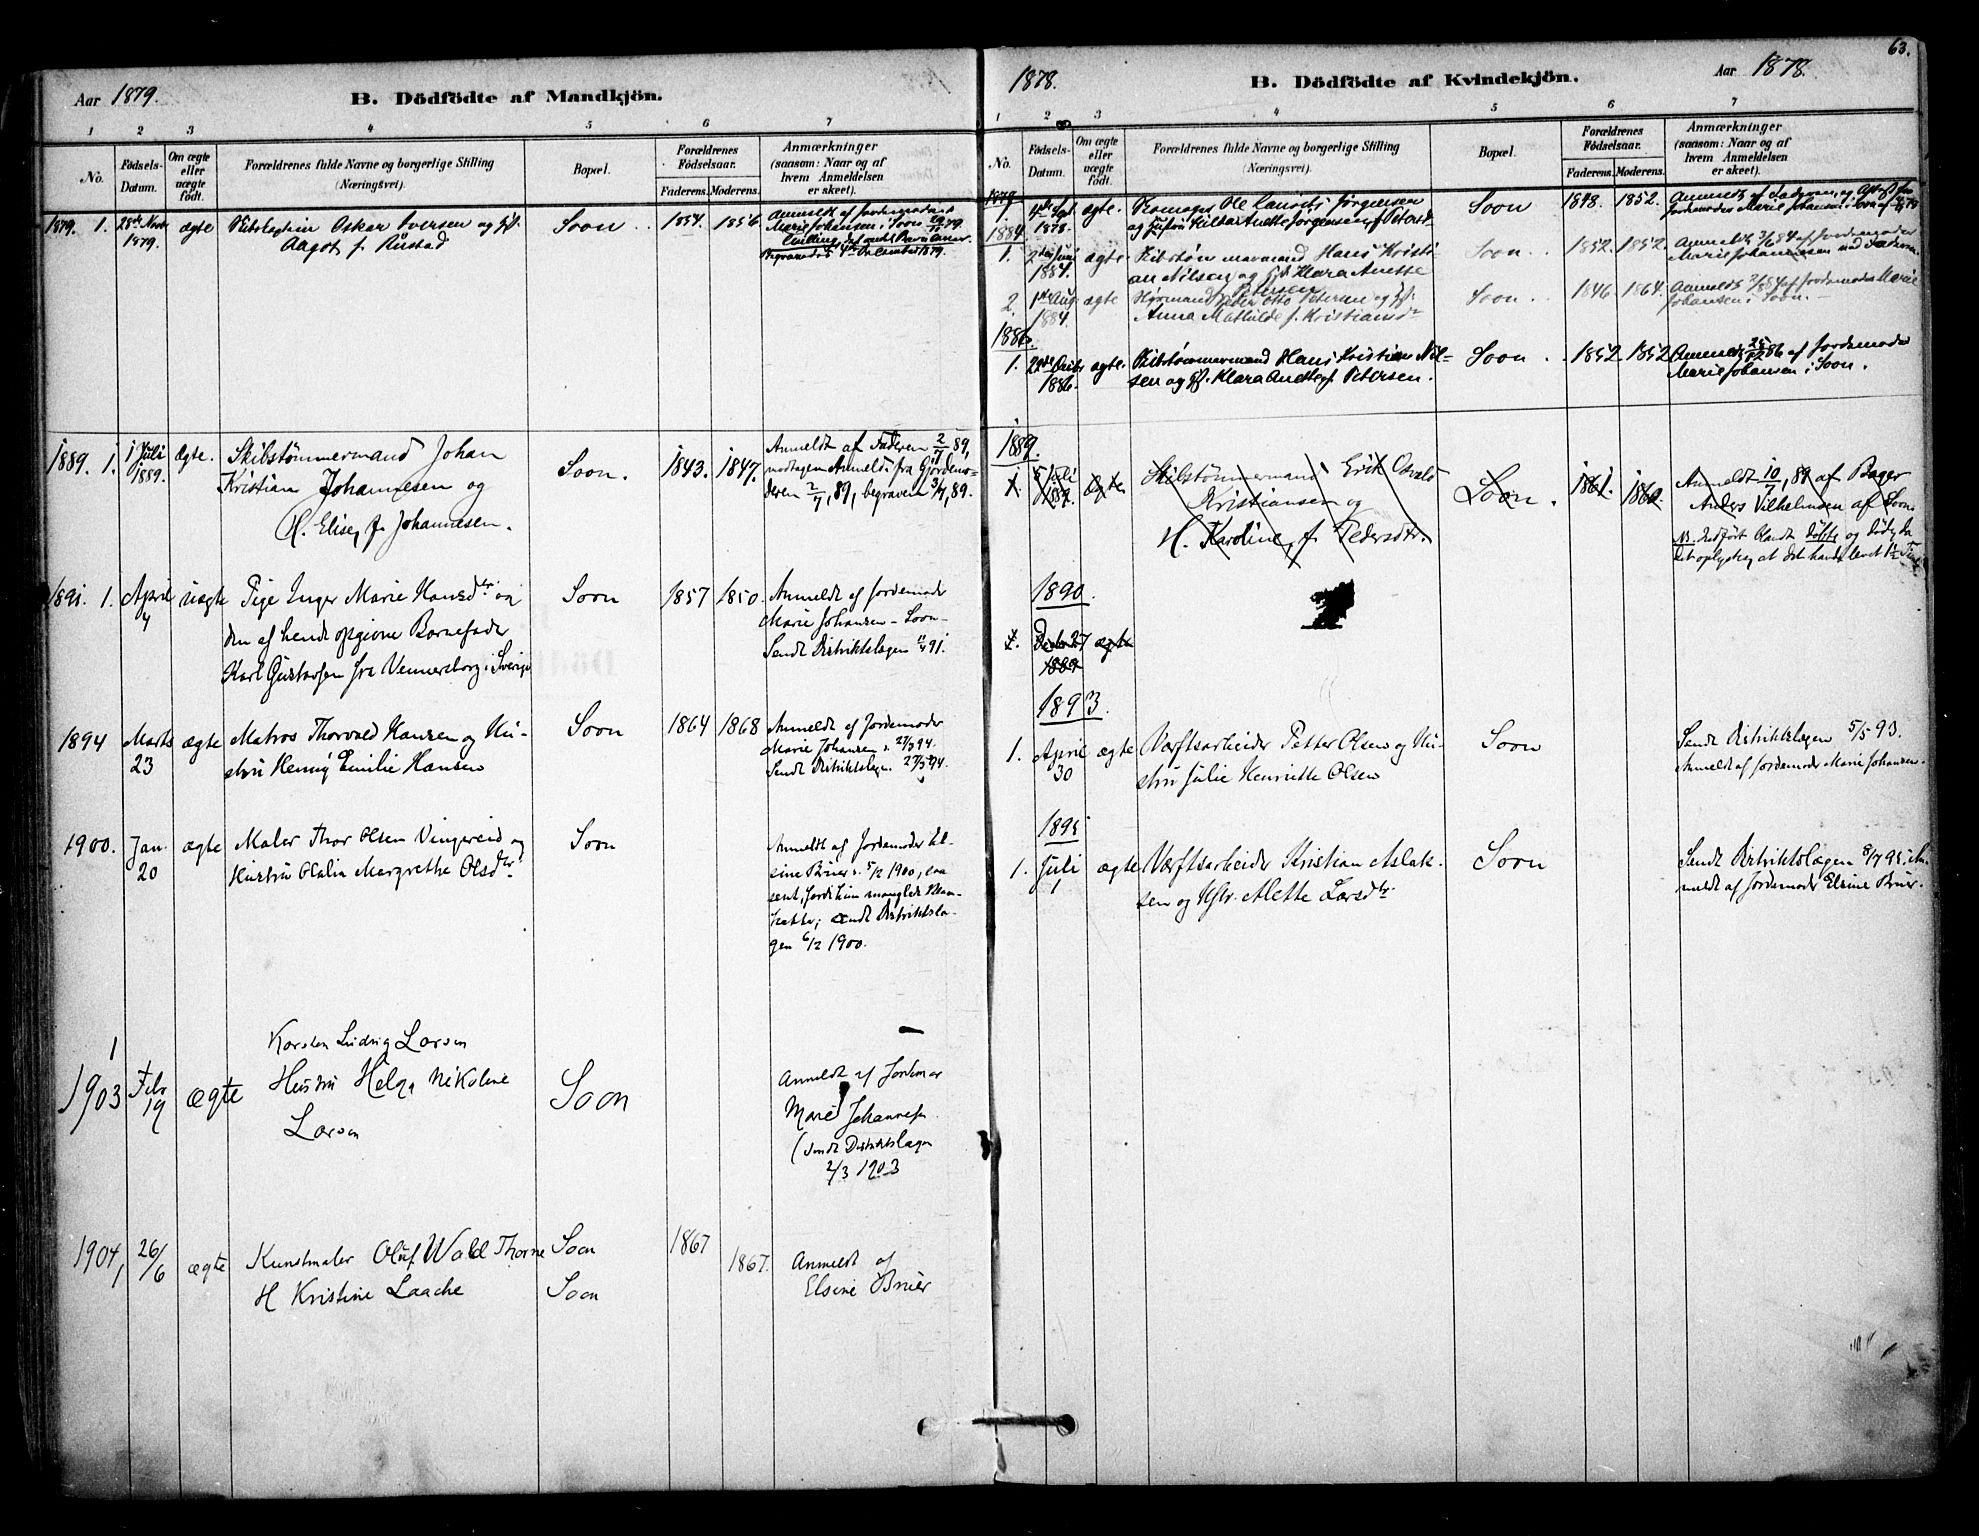 Aar 1879.
B. Dödfödte af Mandkjön.
1 2 3 4 5 6 7
No.
Födsels-Datum.
Om ægte eller uægte födt.
Forældrenes fulde Navne og borgerlige Stilling (Næringsvei).
Bopæl.
Forældrenes Födselsaar.
Faderens. Moderens.
Anmærkninger (saasom: Naar og af hvem Anmeldelsen er skeet).
1879. 1. 28de Novbr 1879. ægte
Oskar Iversen og
Aagot f. Rustad
Soon 1854. 1856.
Anmeldt af Jordemoder
Marie Johansen i Soon
Begravedes 4de December 1879.
1889. 1. 1 Juli 1889. Ægte.
Skibstømmermand Johan
Kristian Johannesen og
H. Elise, f. Johannesen.
Soon. 1843. 1847.
Anmeldt af Faderen 2/7 89,
modtagen Anmeld. fra Gjordemo-
deren 2/7, 89, begraven 3/7, 89.
1891. 1. April 4 uægte
Pige Inger Marie Hansdtr og
den af hende opgivne Barnefader
Karl Gustavsen fra Vennersborg i Sverige
Soon 1857 1850.
Anmeldt af Jordemoder
Marie Johansen - Soon -
Sendt Distriktslægen 11/4 91.
1894 Marts 23 ægte
Matros Thorvald Hansen og Hu-
stru Henny Emilie Hansen
Soon 1864 1868
Anmeldt af Jordemoder
Marie Johansen 27/3 94.
Sendt Distriktslægen 27/3 94.
1900. Jan. 20 ægte
Maler Thor Olsen Vingereid og
Hustru Olalia Margrethe Olsdtr
Soon
Anmeldt af Jordemoder El-
sine Bruer 5/2 1900, saa
sent, fordi hun manglede Blan-
ketter; sendt Distriktslæ-
gen 6/2 1900.
1
1903 Febr 19 ægte
Karsten Ludvig Larsen
Hustru Helga Nikoline
Larsen
Soon
Anmeldt af Jordmor
Marie Johannesen
(sendt Distriktslægen
2/3 1903
1904 1 26/6 ægte
Kunstmaler Oluf Wold Thorne
H Kristine Laache
Soon
Soon
1867 1867.
Anmeldt af
Elsine Bruer
63.
1878.
B. Dödfödte af Kvindekjön.
Aar 1878.
1 2 3 4 5 6 7
No.
Födsels-Datum.
Om ægte eller uægte födt.
Forældrenes fulde Navne og borgerlige Stilling (Næringsvei).
Bopæl.
Forældrenes Födselsaar.
Faderens. Moderens.
Anmærkninger (saasom: Naar og af hvem Anmeldelsen er skeet).
1. 4de Sept. 1878. ægte.
Ole Jørgensen
og Hustru Anette Jørgensen, f. Petersd.
Soon 1848. 1852.
Anmeldt af Faderen og
Jordemoder Marie Johansen i Soon
1884.
1. 2den Juni 1884. ægte
Skibstømmermand Hans Kristi-
an Nilsen og Hst Klara Anette
Petersen
Soon. 1852. 1852.
Anmeldt 3/6 84 af Jordemoder
Marie Johannesen ved Faderen.
2. 1ste Aug 1884. ægte
Peder Otto Petersen og
Anna Mathilde f. Kristiansdtr
Soon. 1846. 1864.
Anmeldt 2/8 84 af Jordemoder Marie
Johansen i Soon.
1886.
1. 1886. ægte.
Skibstømmermand Hans Kristian Nil-
sen og Klara Anette f. Petersen.
Soon. 1852 1852
Anmeldt 86 af Jordemoder
Marie Johansen i Soon.
1889.
1. 8 Juli 1889. Ægte
Skibstømmermand Erik Osvald
Kristiansen og
H. Karoline, f. Pedersdtr.
Soon. 1861. 1862.
Anmeldt 10/7, 89 af Bager
Anders Vilhelmsen af Soon.
NB. Indført blandt døbte og døde, da
det oplystes, at det havde levet
1890.
1. Decbr 27 1889 ægte
1893.
1. April 30 ægte
Værftsarbeider Petter Olsen og Hu-
stru Julie Henriette Olsen
Soon
Sendt Distriktslægen 5/5 93.
Anmeldt af Jordemoder Marie Johansen.
1895
1. Juli 1 ægte
Værftsarbeider Kristian Aslak-
sen og Hstr. Alette Larsdtr.
Soon
Sendt Distriktslægen 8/7 95; An-
meldt af Jordemoder Elsine Bruer.